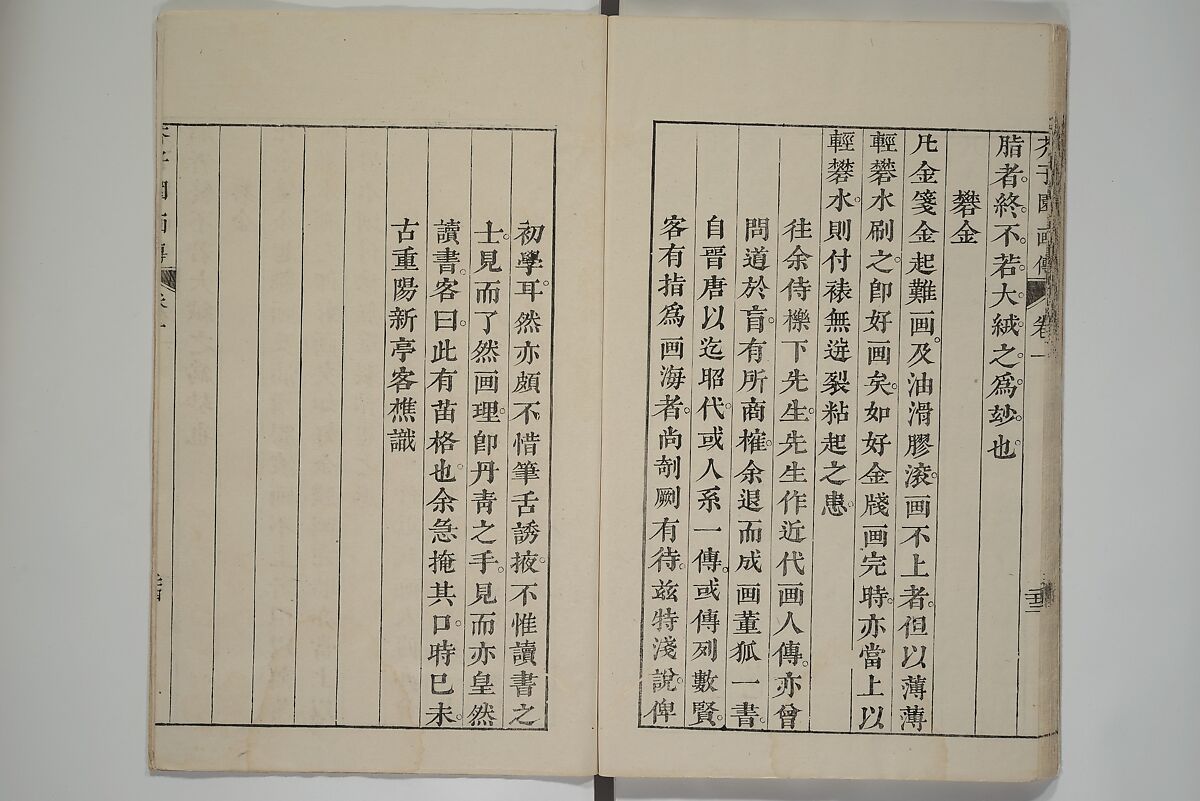 芥子園画傳 卷一
脂者。終不若大絨之爲玅也
礬金
凡金箋金起難画。及油滑膠滾。画不上者。但以薄薄
輕礬水刷之。卽好画矣。如好金牋画完時。亦當上以
輕礬水。則付裱無迸裂粘起之患。
往余侍櫟下先生。先生作近代画人傳。亦曾
問道於盲。有所商榷。余退而成画董狐一書。
自晋唐以迄昭代。或人系一傳。或傳列數賢。
客有指爲画海者。尚剞劂有待。兹特淺說。俾
初學耳。然亦頗不惜筆舌誘掖。不惟讀書之
士。見而了然画理。卽丹靑之手。見而亦皇然
讀書。客曰。此有苗格也。余急掩其口。時巳未。
古重陽新亭客樵識